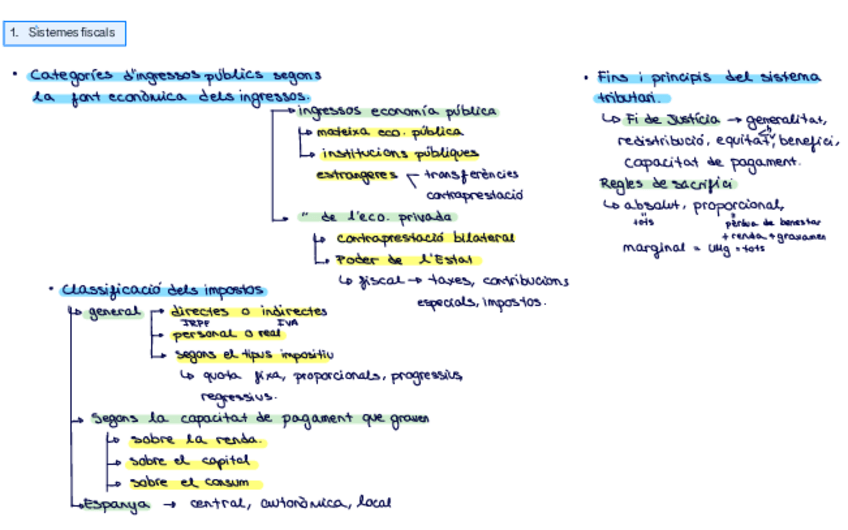 1. Sistemes fiscals
• Categoríes d'ingressos públics segons
la font econòmica dels ingressos.
→ ingressos economía pública
↳ mateixa eco. pública
↳ institucions públiques
estrangeres transferències
contraprestació
→ " de l'eco. privada
↳ contraprestació bilateral
↳ Poder de l'Estat
↳ fiscal → taxes, contribucions
especials, impostos.
• Classificació dels impostos
↳ general → directes o indirectes
IRPF IVA
→ personal o real
→ segons el tipus impositiu
↳ quota fixa, proporcionals, progressius,
regressius.
→ Segons la capacitat de pagament que graven
↳ sobre la renda.
→ sobre el capital
→ sobre el consum
↳ Espanya → central, autonòmica, local
• Fins i principis del sistema
tributari.
↳ Fi de Justícia → generalitat,
redistribució, equitat, benefici,
capacitat de pagament.
Regles de sacrifici
↳ absolut, proporcional,
" tots pèrdua de benestar
+ renda + gravamen
marginal = UMg = tots